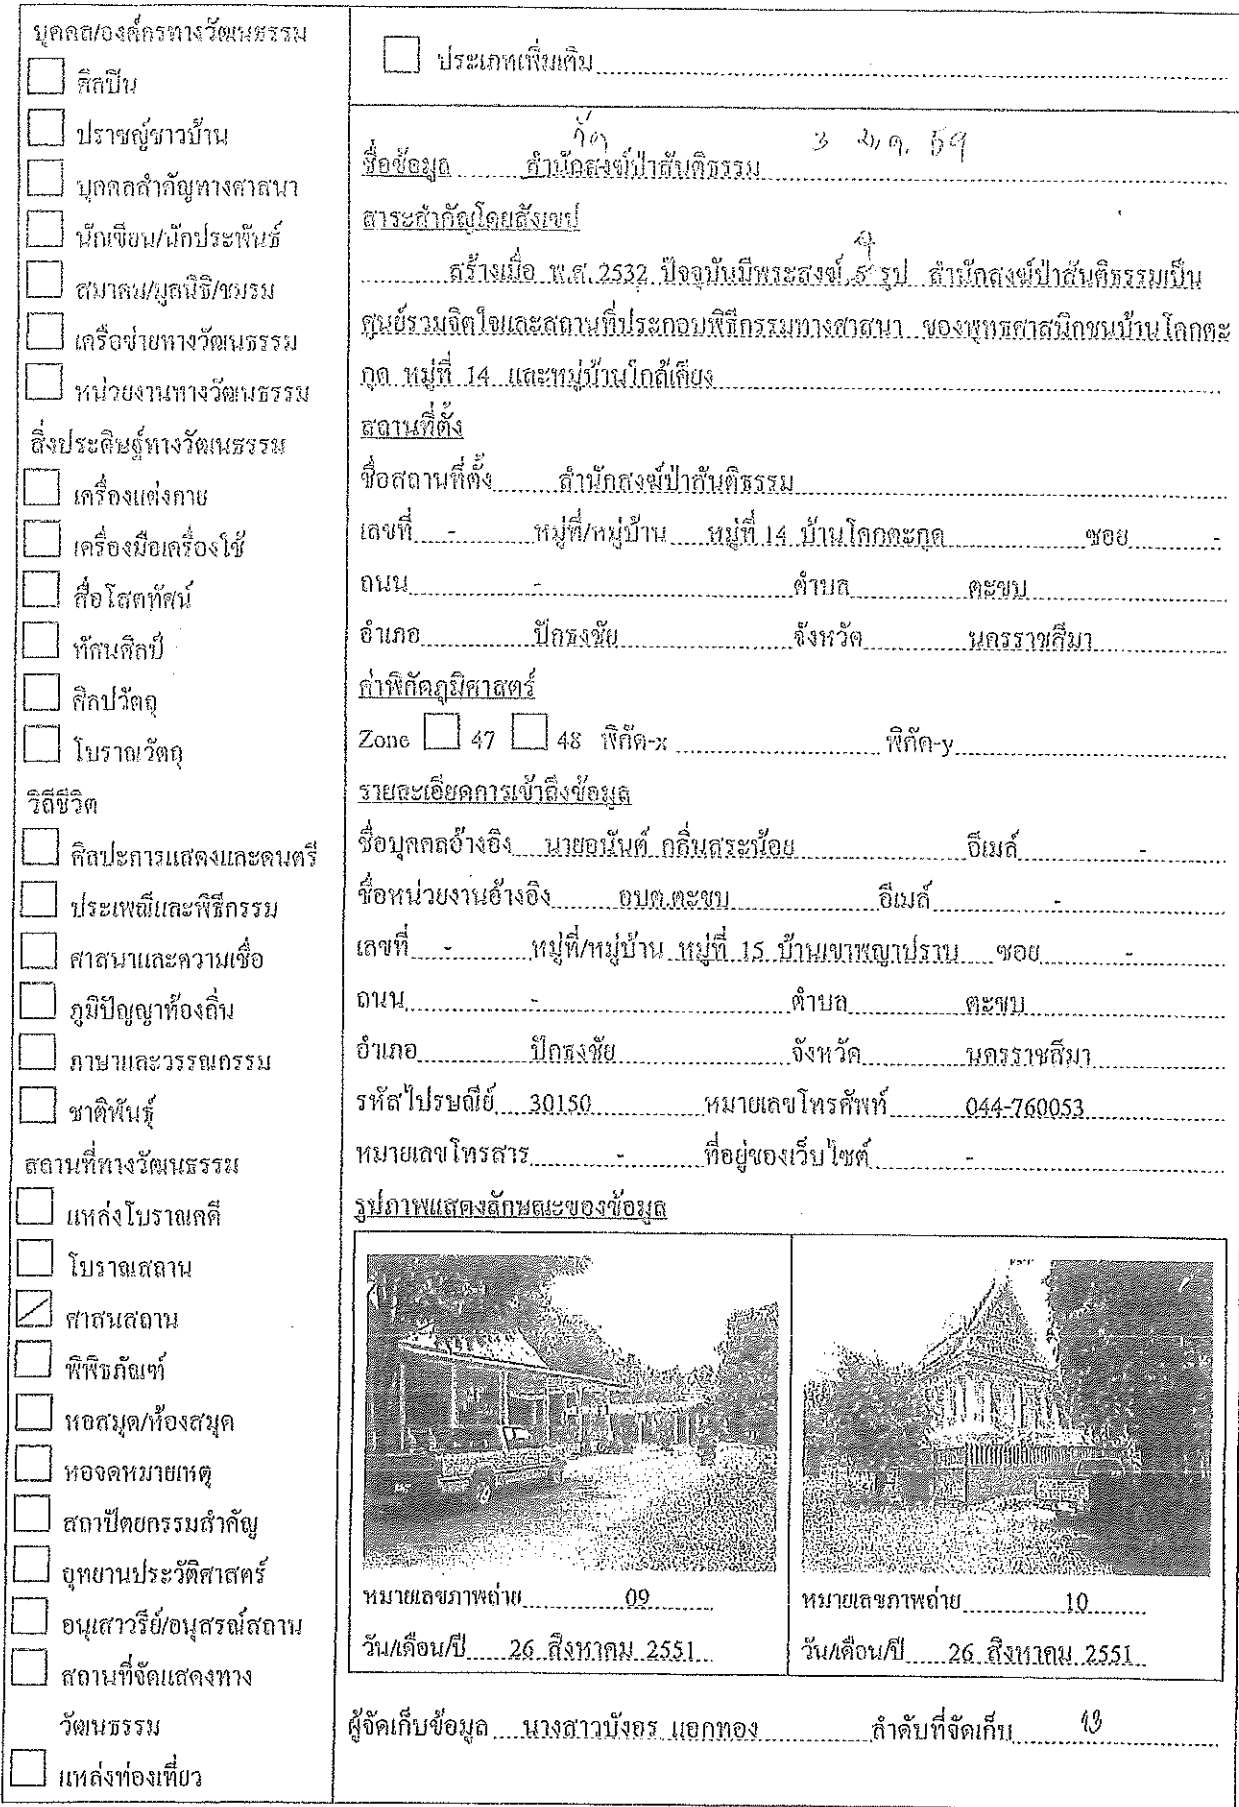 บุคคล/องค์กรทางวัฒนธรรม
ศิลปิน
ปราชญ์ชาวบ้าน
บุคคลสำคัญทางศาสนา
นักเขียน/นักประพันธ์
สมาคม/มูลนิธิ/ชมรม
เครือข่ายทางวัฒนธรรม
หน่วยงานทางวัฒนธรรม
สิ่งประดิษฐ์ทางวัฒนธรรม
เครื่องแต่งกาย
เครื่องมือเครื่องใช้
สื่อโสตทัศน์
ทัศนศิลป์
ศิลปวัตถุ
โบราณวัตถุ
วิถีชีวิต
ศิลปะการแสดงและดนตรี
ประเพณีและพิธีกรรม
ศาสนาและความเชื่อ
ภูมิปัญญาท้องถิ่น
ภาษาและวรรณกรรม
ชาติพันธุ์
สถานที่ทางวัฒนธรรม
แหล่งโบราณคดี
โบราณสถาน
ศาสนสถาน
พิพิธภัณฑ์
หอสมุด/ห้องสมุด
หอจดหมายเหตุ
สถาปัตยกรรมสำคัญ
อุทยานประวัติศาสตร์
อนุเสาวรีย์/อนุสรณ์สถาน
สถานที่จัดแสดงทาง
วัฒนธรรม
แหล่งท่องเที่ยว
ประเภทเพิ่มเติม
วัด 3 59
ชื่อข้อมูล สำนักสงฆ์ป่าสันติธรรม
สาระสำคัญโดยสังเขป
สร้างเมื่อ พ.ศ. 2532 ปัจจุบันมีพระสงฆ์ รูป สำนักสงฆ์ป่าสันติธรรมเป็น
ศูนย์รวมจิตใจและสถานที่ประกอบพิธีกรรมทางศาสนา ของพุทธศาสนิกชนบ้านโคกตะ
กุด หมู่ที่ 14 และหมู่บ้านใกล้เคียง
สถานที่ตั้ง
ชื่อสถานที่ตั้ง สำนักสงฆ์ป่าสันติธรรม
เลขที่ - หมู่ที่/หมู่บ้าน หมู่ที่ 14 บ้านโคกตะกุด ซอย -
ถนน - ตำบล ตะขบ
อำเภอ ปักธงชัย จังหวัด นครราชสีมา
ค่าพิกัดภูมิศาสตร์
Zone 47 48 พิกัด-x พิกัด-y
รายละเอียดการเข้าถึงข้อมูล
ชื่อบุคคลอ้างอิง นายอนันต์ กลิ่นสระน้อย อีเมล์ -
ชื่อหน่วยงานอ้างอิง อบต.ตะขบ อีเมล์ -
เลขที่ - หมู่ที่/หมู่บ้าน หมู่ที่ 15 บ้านเขาพญาปราบ ซอย -
ถนน - ตำบล ตะขบ
อำเภอ ปักธงชัย จังหวัด นครราชสีมา
รหัสไปรษณีย์ 30150 หมายเลขโทรศัพท์ 044-760053
หมายเลขโทรสาร - ที่อยู่ของเว็บไซต์ -
รูปภาพแสดงลักษณะของข้อมูล
หมายเลขภาพถ่าย 09
วัน/เดือน/ปี 26 สิงหาคม 2551
หมายเลขภาพถ่าย 10
วัน/เดือน/ปี 26 สิงหาคม 2551
ผู้จัดเก็บข้อมูล นางสาวบังอร แอกทอง ลำดับที่จัดเก็บ